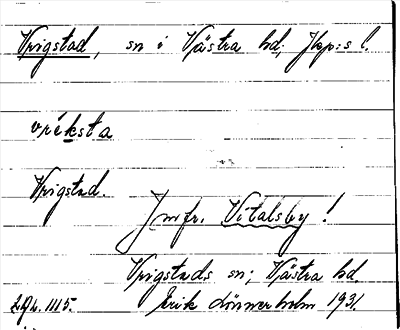 Vrigstad, sn i Västra hd, Jkp:s l.
vréksta
Vrigstad.
Jmfr. Vitalsby!
Vrigstads sn; Västra hd.
Erik Lönnerholm 1931.